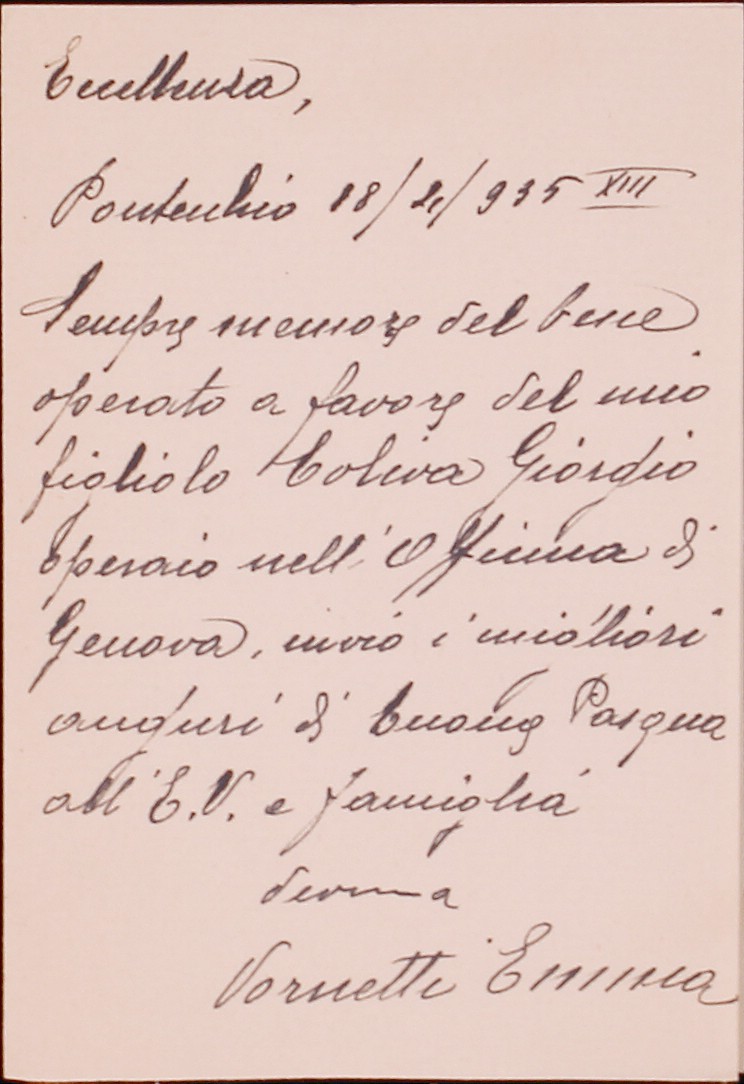 Eccellenza,
Pontecchio 18/4/935 XIII
Sempre memore del bene
operato a favore del mio
figliolo Coliva Giorgio
operaio nell'Officina di
Genova, invio i migliori
auguri di buona Pasqua
all'E.V. e famiglia
devma
Vornetti Emma